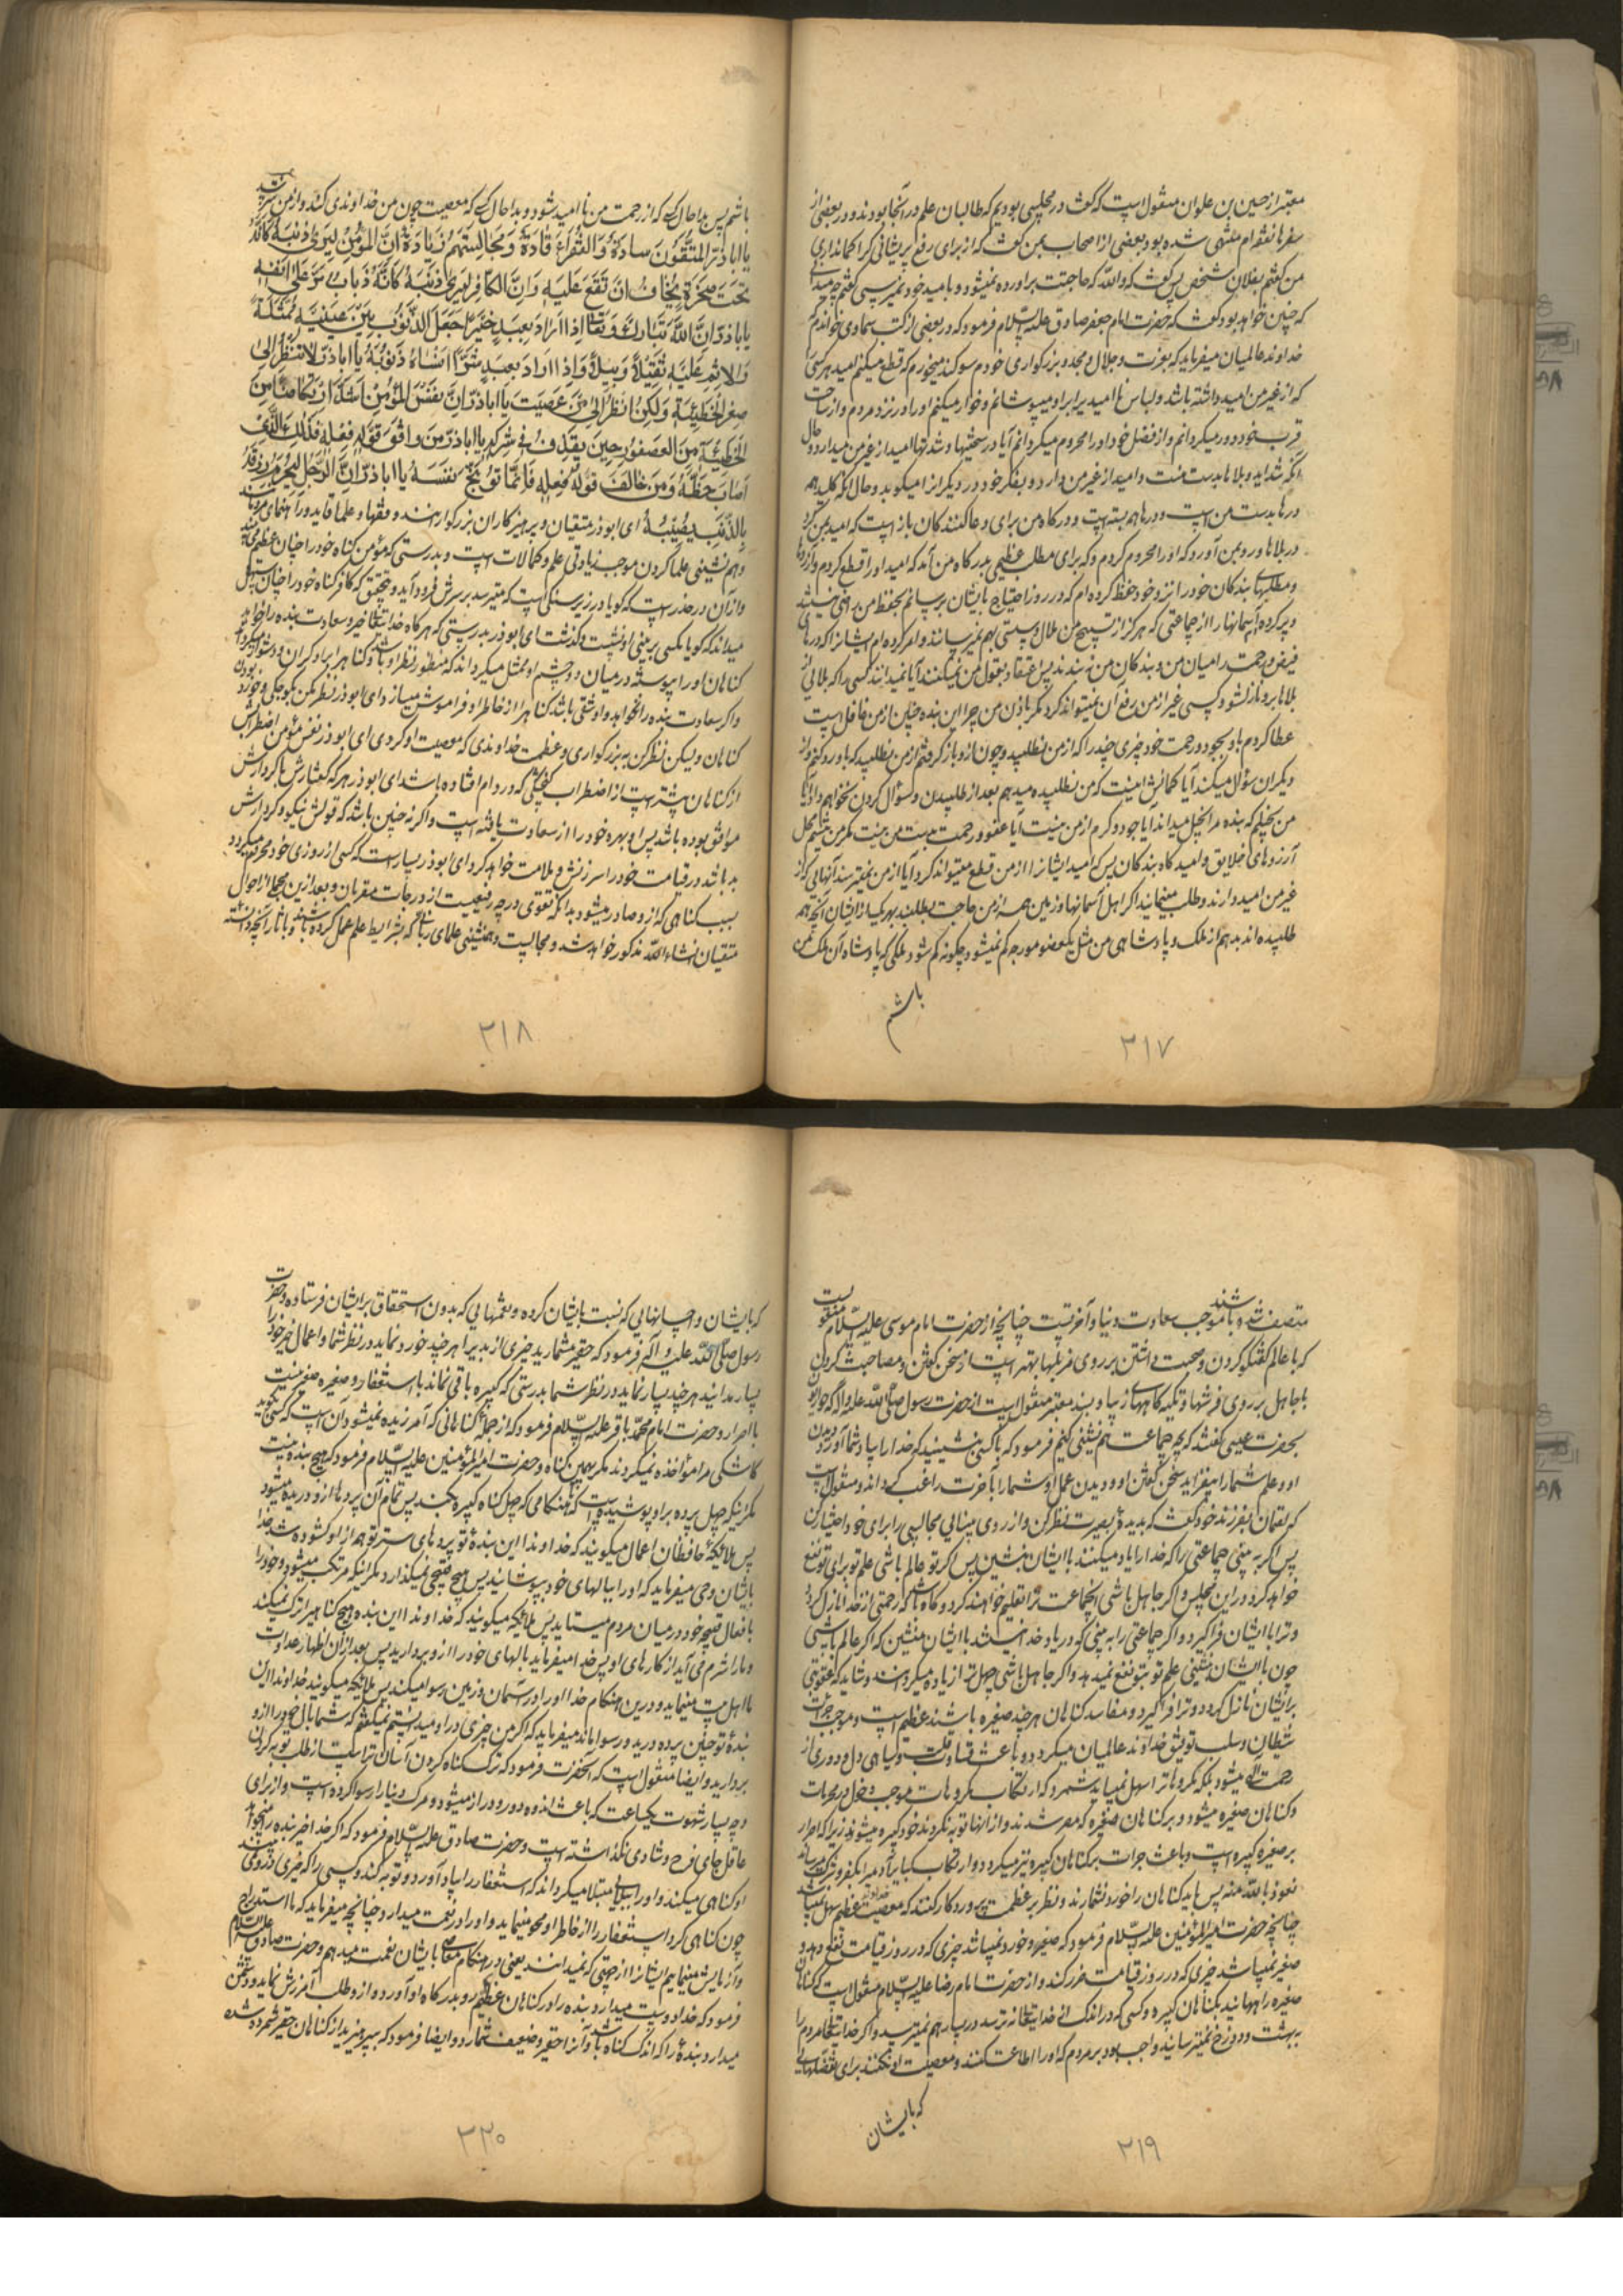 معتبر از حسین بن علوان منقولست که گفت در مجلسی بودیم که طالبان علم در آنجا بودند و در بعضی از
سفرها نفقه‌ام منتهی شده بود و بعضی از اصحاب بمن گفت که از برای رفع پریشانی کرا گمان داری
من گفتم بفلان شخص پس گفت که والله که حاجتت برآورده نمیشود و بامید خود نمیرسی گفتم چه میدانی
که چنین خواهد بود گفت که حضرت امام جعفر صادق علیه السلام فرمود که در بعضی از کتب سماوی خوانده‌ام
خداوند عالمیان میفرماید که بعزت و جلال و مجد و بزرگواری خودم سوگند میخورم که قطع میکنم امید هر کسی
که از غیر من امید داشته باشد و لباس ناامیدی را بر او میپوشانم و خوار میکنم او را در نزد مردم و از ساحت
قرب خود دور میگردانم و از فضل خود او را محروم میگردانم آیا در سختیها و شدتها امید از غیر من میدارد و حال
آنکه شداید و بلاها بدست منست و امید از غیر من دارد و بفکر خود در دیگر از را میکوبد و حال آنکه کلید همه
درها بدست من است و درها همه بسته است و درگاه من برای دعا کنندگان باز است که امید بمن کرد
در بلاها و رو بمن آورد که او را محروم کردم و که برای مطلب عظیمی بدرگاه من آمد که امید او را قطع کردم و آرزوها
و مطلبهای بندگان خود را نزد خود حفظ کرده‌ام که در روز احتیاج بایشان برسانم بحفظ من راضی نیستند
و پر کرده‌ام آسمانها را از جماعتی که هرگز از تسبیح من ملال و سستی بهم نمیرسانند و امر کرده‌ام ایشانرا که درهای
فیض و رحمت را میان من و بندگان من نبندند پس اعتماد بقول من نمیکنند آیا نمیدانند کسی را که بلائی از
بلاها برو نازل شود کسی غیر از من رفع آن نمیتواند کرد مگر باذن من چرا این بنده چنان از من غافل است
عطا کردم باو بجود و رحمت خود چیزی چند را که از من نطلبید و چون ازو باز گرفتم از من نطلبید که باو رد کنم و از
دیگران سؤال میکند آیا گمانش اینست که من نطلبیده میدهم بعد از طلبیدن و سؤال کردن نخواهم داد آیا
من بخیلم که بنده مرا بخیل میداند آیا جود و کرم از من نیست آیا عفو و رحمت بدست من نیست مگر من نیستم محل
آرزوهای خلایق و امیدگاه بندگان پس که امید ایشانرا از من قطع میتواند کرد آیا از من نمیترسند آنهائی که از
غیر من امید دارند و طلب مینمایند اگر اهل آسمانها و زمین همه از من حاجت بطلبند بهر یک از ایشان آنچه همه
طلبیده‌اند بدهم از ملک و پادشاهی من مثل یک عضو مورچه کم نمیشود چگونه کم شود ملکی که پادشاه آن ملک من
باشم
۳۱۷
باشم پس بدا حال کسی که از رحمت من ناامید شود و بدا حال کسی که معصیت چون من خداوندی کند و از من نترسد
یا اباذر المتقون سادة و الفقراء قادة و مجالستهم زیادة ان المؤمن لیری ذنبه کانه
تحت صخرة یخاف ان تقع علیه و ان الکافر لیری ذنبه کانه ذباب مر علی انفه
یا اباذر ان الله تبارک و تعالی اذا اراد بعبد خیرا جعل الذنوب بین عینیه ممثلة
و الاثم علیه ثقیلا وبیلا و اذا اراد بعبد شرا انساه ذنوبه یا اباذر لا تنظر الی
صغر الخطیئة و لکن انظر الی من عصیت یا اباذر ان نفس المؤمن اشد ارتکاضا من
الخطیئة من العصفور حین یقذف فی شرکه یا اباذر من وافق قوله فعله فذلک الذی
اصاب حظه و من خالف قوله فعله فانما توبخ نفسه یا اباذر ان الرجل لیحرم رزقه
بالذنب یصیبه ای ابوذر متقیان و پرهیزکاران بزرگوارانند و فقها و علما قاید و راهنمای مردمانند
و هم نشینی علما کردن موجب زیادتی علم و کمالات است و بدرستی که مؤمن گناه خود را چنان عظیم میداند
و از آن در حذر است که گویا در زیر سنگی است که میترسد بر سرش فرود آید و بتحقیق که کافر گناه خود را چنان سهل
میداند که گویا مگسی بر بینی او نشست و گذشت ای ابوذر بدرستی که هرگاه خدایتعالی خیر و سعادت بنده را خواهد
گناهان او را پیوسته در میان دو چشم او ممثل میگرداند که منظور نظر او باشد و گناه را بر او گران و دشوار میگرداند
و اگر سعادت بنده را نخواهد و او شقی باشد گناه را از خاطر او فراموش میسازد ای ابوذر نظر مکن بکوچکی و خوردی
گناهان ولیکن نظر کن به بزرگواری و عظمت خداوندی که معصیت او کردی ای ابوذر نفس مؤمن اضطرابش
از گناهان بیشتر است از اضطراب گنجشکی که در دام افتاده باشد ای ابوذر هر که گفتارش با کردارش
موافق بوده باشد پس او بهره خود را از سعادت یافته است و اگر نه چنین باشد که قولش نیکو و کردارش
بد باشد در قیامت خود را سرزنش و ملامت خواهد کرد ای ابوذر بسیار است که کسی از روزی خود محروم میگردد
بسبب گناهی که ازو صادر میشود بدانکه تقوی درجه رفیعیست از درجات مقربان و بعد ازین مجملی از احوال
متقیان انشاء الله مذکور خواهد شد و مجالست و همنشینی علمای ربانی که بشرایط علم عمل کرده باشند و بآثار آنچه دانسته
۳۱۸
متصف شده باشند موجب سعادت دنیا و آخرتست چنانچه از حضرت امام موسی علیه السلام منقولست
که با عالم گفتگو کردن و صحبت داشتن بر روی مزبلها بهتر است از سخن گفتن و مصاحبت کردن
با جاهل بر روی فرشها و تکیه گاههای زیبا و بسند معتبر منقولست از حضرت رسول صلی الله علیه و آله که حواریون
بحضرت عیسی گفتند که بچه جماعت همنشینی کنیم فرمود که با کسی بنشینید که خدا را بیاد شما آورد دیدن
او و علم شما را بیفزاید سخن گفتن او و دیدن عمل او شما را بآخرت راغب گرداند و منقولست
که لقمان بفرزند خود گفت که بدیدهٔ بصیرت نظر کن و از روی بینائی مجالسی را برای خود اختیار کن
پس اگر به بینی جماعتی را که خدا را یاد میکنند با ایشان بنشین پس اگر تو عالم باشی علم تو برای تو نفع
خواهد کرد در این مجلس و اگر جاهل باشی آنجماعت ترا تعلیم خواهند کرد و گاه باشد که رحمتی از خدا نازل گردد
و ترا با ایشان فرا گیرد و اگر جماعتی را به بینی که در یاد خدا نباشند با ایشان منشین که اگر عالم باشی
چون با ایشان بنشینی علم تو بتو نفع نمیدهد و اگر جاهل باشی جهل ترا زیاده میگردانند و شاید که عقوبتی
بر ایشان نازل گردد و ترا فرا گیرد و مفاسد گناهان هر چند صغیره باشند عظیم است و موجب جرات
شیطان و سلب توفیق خداوند عالمیان میگردد و باعث قساوت قلب و سیاهی دل و دوری از
رحمت الهی میشود بلکه مکروهات را سهل نمیباید شمرد که ارتکاب مکروهات موجب دخول در محرمات
و گناهان صغیره میشود و بر گناهان صغیره که مصر شدند و از آنها توبه نکردند خود کبیره میشوند زیرا که اصرار
بر صغیره کبیره است و باعث جرات بر گناهان کبیره نیز میگردد و ارتکاب کبایر آدمی را بکفر و شرک میرساند
نعوذ بالله منه پس باید گناهان را خورد نشمارند و نظر بر عظمت پروردگار کنند که معصیت خداوند عظیم سهل نمیباشد
چنانچه حضرت امیرالمؤمنین علیه السلام فرمود که صغیره و خورد نمیباشد چیزی که در روز قیامت نفع دهد و
صغیر نمیباشد چیزی که در روز قیامت ضرر کند و از حضرت امام رضا علیه السلام منقولست که گناهان
صغیره راههایند بگناهان کبیره و کسی که در اندک از خدایتعالی نترسد در بسیار هم نمیترسد و اگر خدایتعالی مردم را
به بهشت و دوزخ نمیترسانید واجب بود بر مردم که او را اطاعت کنند و معصیت او نکنند برای تفضلهائی
که بایشان
۳۱۹
که بایشان و احسانهائی که نسبت بایشان کرده و نعمتهائی که بدون استحقاق بر ایشان فرستاده و حضرت
رسول صلی الله علیه و آله فرمود که حقیر مشمارید چیزی از بد یرا هر چند خورد نماید در نظر شما و اعمال خیر خود را
بسیار مدانید هر چند بسیار نماید در نظر شما بدرستی که کبیره باقی نماند با استغفار و صغیره صغیر نیست
با اصرار و حضرت امام محمد باقر علیه السلام فرمود که از جملهٔ گناهانی که آمرزیده نمیشود آن است که کسی گوید
کاشکی مرا مؤاخذه نمیکردند مگر بهمین گناه و حضرت امیرالمؤمنین علیه السلام فرمود که هیچ بنده نیست
مگر اینکه چهل پرده بر او پوشیده است تا هنگامی که چهل گناه کبیره بکند پس تمام آن پردها ازو دریده میشود
پس ملائکهٔ حافظان اعمال میگویند که خداوندا این بندهٔ تو پردهای ستر تو همه از او گشوده شد خدا
بایشان وحی میفرماید که او را ببالهای خود بپوشانید پس هیچ قبیحی نمیگذارد مگر اینکه مرتکب میشود و خود را
بافعال قبیحه خود در میان مردم میستاید پس ملائکه میگویند که خداوندا این بنده هیچ گناهی را ترک نمیکند
و ما را شرم می آید از کارهای او پس خدا میفرماید بالهای خود را ازو بردارید پس بعد از آن اظهار عداوت
ما اهل بیت مینماید و درین هنگام خدا او را در آسمان و زمین رسوا میکند پس ملائکه میگویند خداوندا این
بندهٔ تو چنین پرده دریده و رسوا ماند میفرماید که اگر من چیزی در او میدانستم نمیگفتم که شما بال خود را ازو
بردارید و ایضا منقولست که آنحضرت فرمود که ترک گناه کردن آسان تر است از طلب توبه کردن
و چه بسیار شهوت یکساعت که باعث اندوه دور و دراز میشود و مرگ دنیا را رسوا کرده است و از برای
عاقل جای فرح و شادی نگذاشته است و حضرت صادق علیه السلام فرمود که اگر خدا خیر بنده را میخواهد
او گناهی میکند و او را ببلائی مبتلا میگرداند که استغفار را بیاد آورد و توبه کند و کسی را که خیری در او نمی‌بیند
چون گناهی کرد استغفار را از خاطر او محو مینماید و او را در نعمت میدارد چنانچه میفرماید که ما استدراج
و آزمایش مینمائیم ایشانرا از جهتی که نمیدانند یعنی در هنگام معاصی بایشان نعمت میدهم و حضرت صادق علیه السلام
فرمود که خدا دوست میدارد بنده را که در گناهان عظیم رو بدرگاه او آورد و ازو طلب آمرزش نماید و دشمن
میدارد بندهٔ را که اندک گناه باشد و آنرا حقیر و ضعیف شمارد و ایضا فرمود که بپرهیزید از گناهان حقیر شمرده شده
۳۲۰